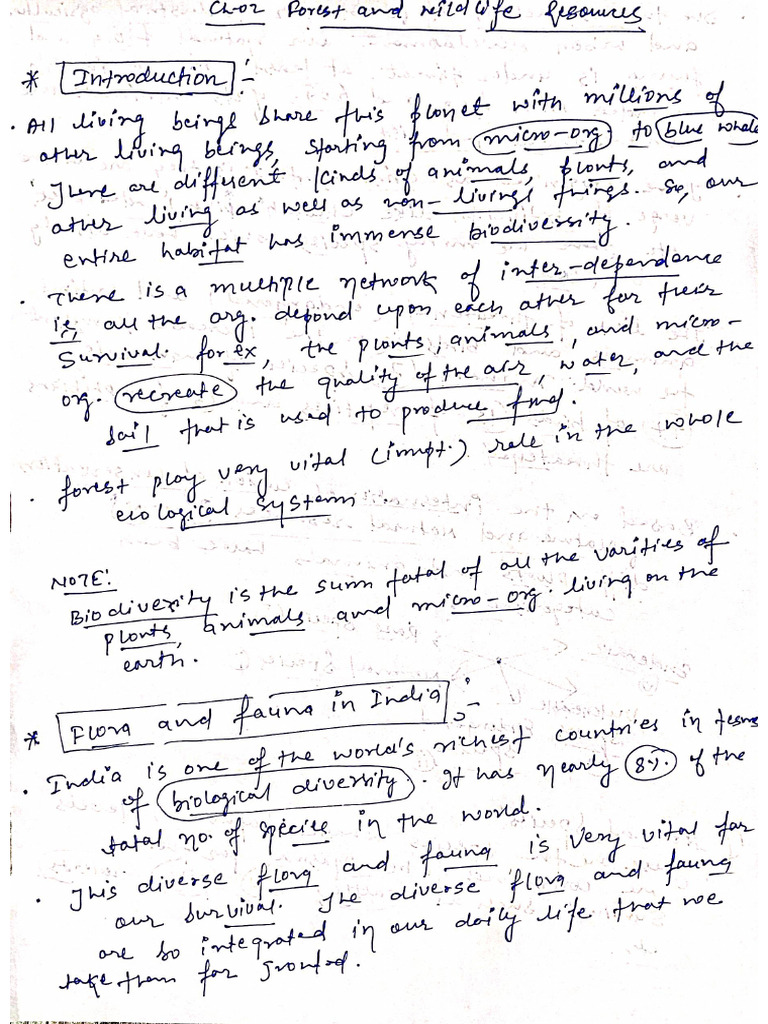 Ch-02 Forest and wildlife Resources
* Introduction :-
. All living beings share this planet with millions of
other living beings, starting from micro-org to blue whale
There are different kinds of animals, plants, and
other living as well as non-livings things. So, our
entire habitat has immense biodiversity.
. There is a multiple network of inter-dependance
ie, all the org. depend upon each other for their
Survival. for ex, the plants, animals, and micro-
org. recreate the quality of the air, water, and the
soil that is used to produce food.
. forest play very vital (impt.) role in the whole
ecological system.
NOTE:
Biodiversity is the sum total of all the varities of
plants, animals and micro-org. living on the
earth.
* Flora and fauna in India :-
. India is one of the world's richest countries in terms
of biological diversity. It has nearly 8%. of the
total no. of species in the world.
. This diverse flora and fauna is very vital for
our survival. The diverse flora and fauna
are so integrated in our daily life that we
take them for granted.